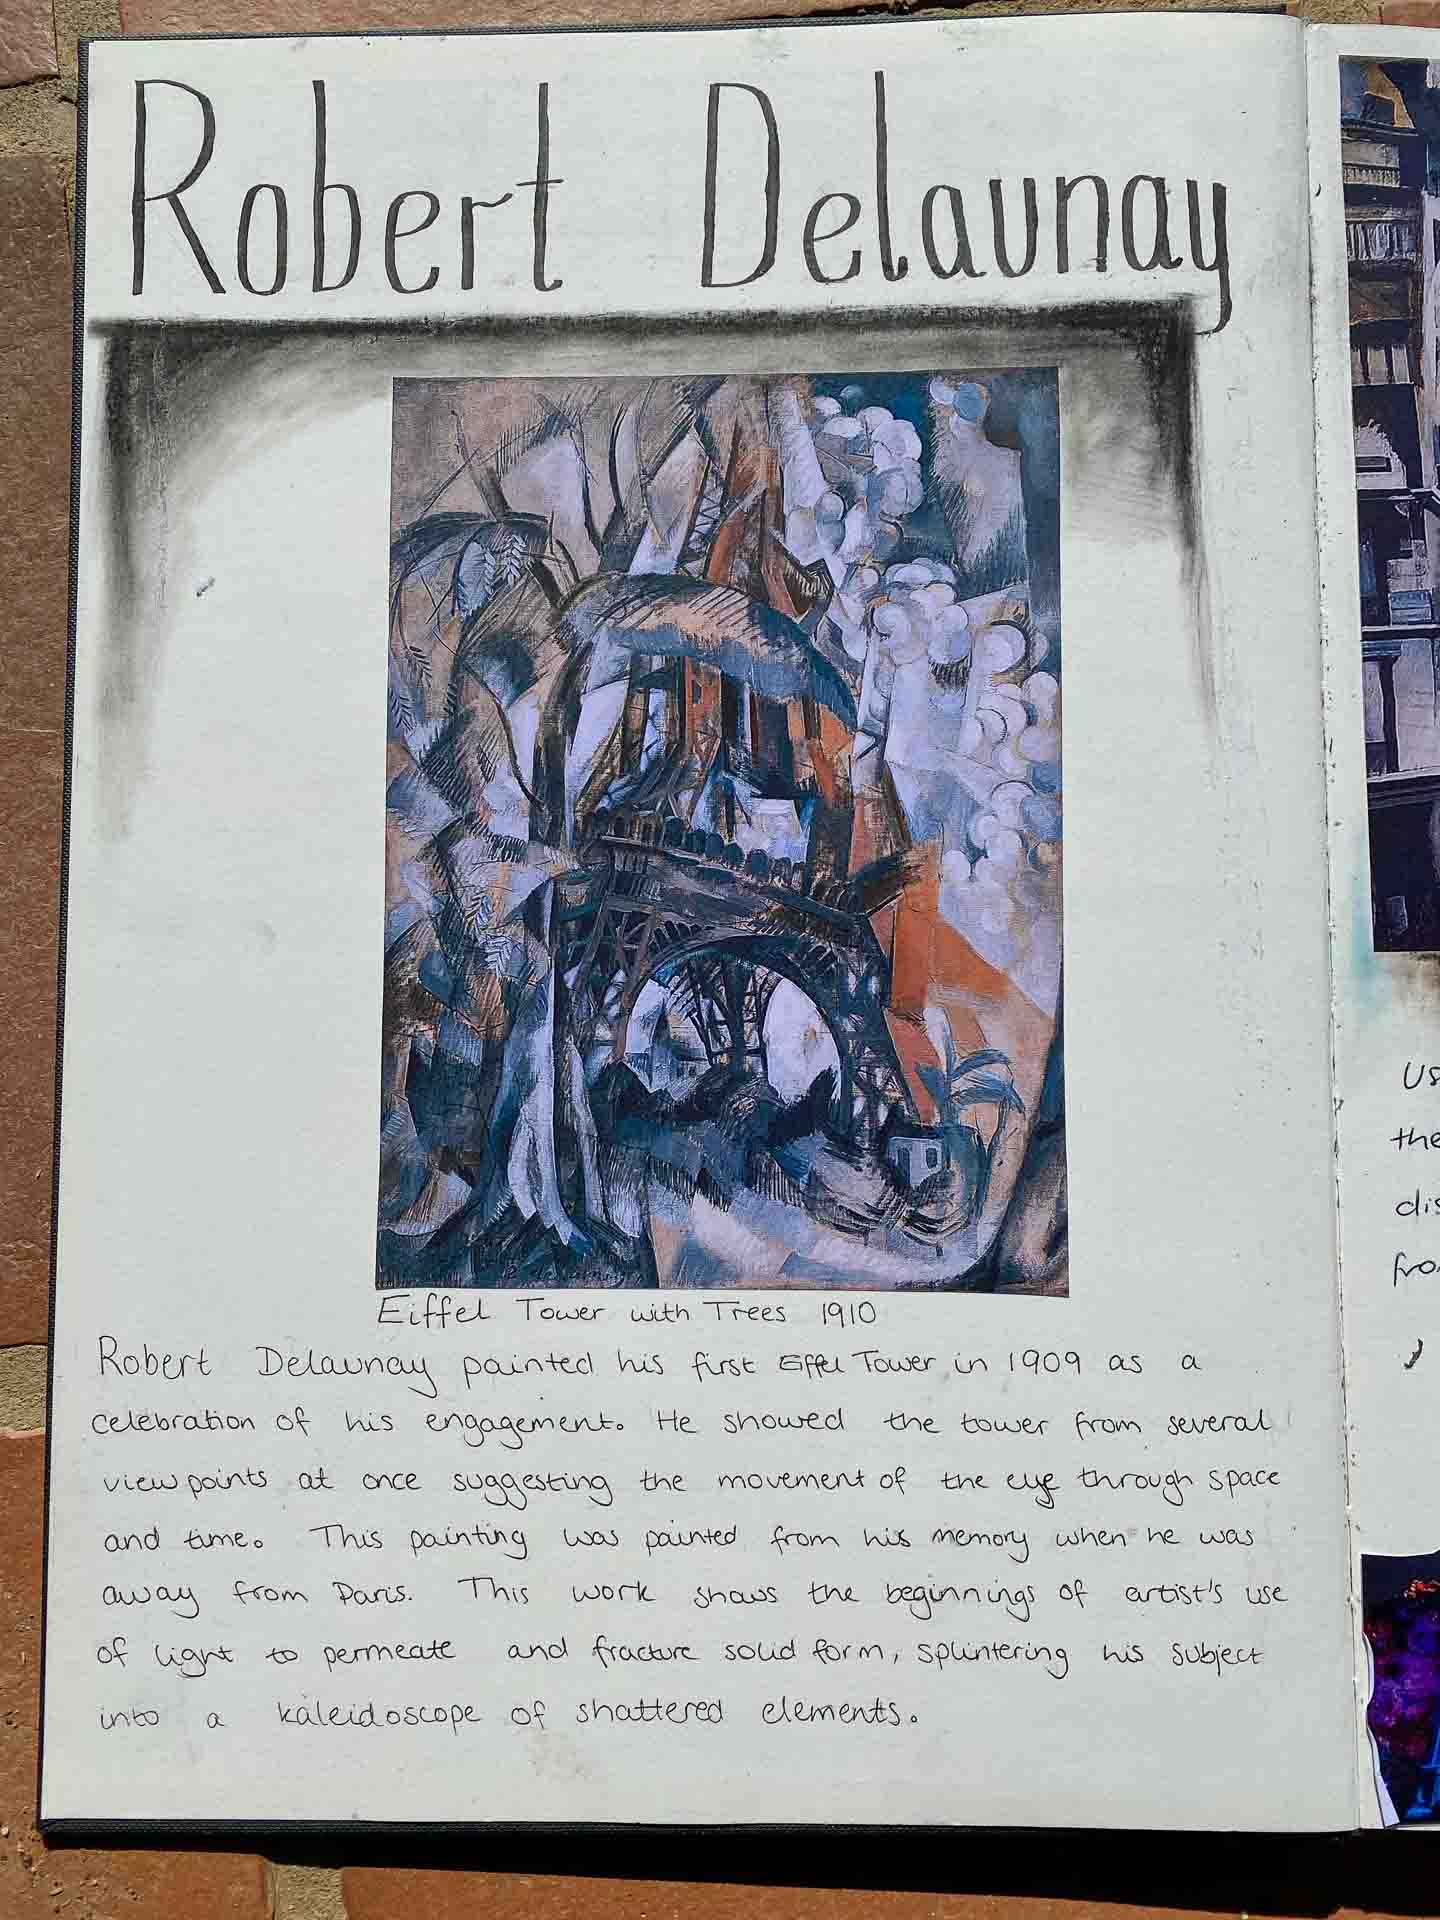 Robert Delaunay
Eiffel Tower with Trees 1910
Robert Delaunay painted his first Eiffel Tower in 1909 as a
celebration of his engagement. He showed the tower from several
viewpoints at once suggesting the movement of the eye through space
and time. This painting was painted from his memory when he was
away from Paris. This work shows the beginnings of artist's use
of light to permeate and fracture solid form, splintering his subject
into a kaleidoscope of shattered elements.
Us
the
dis
fro